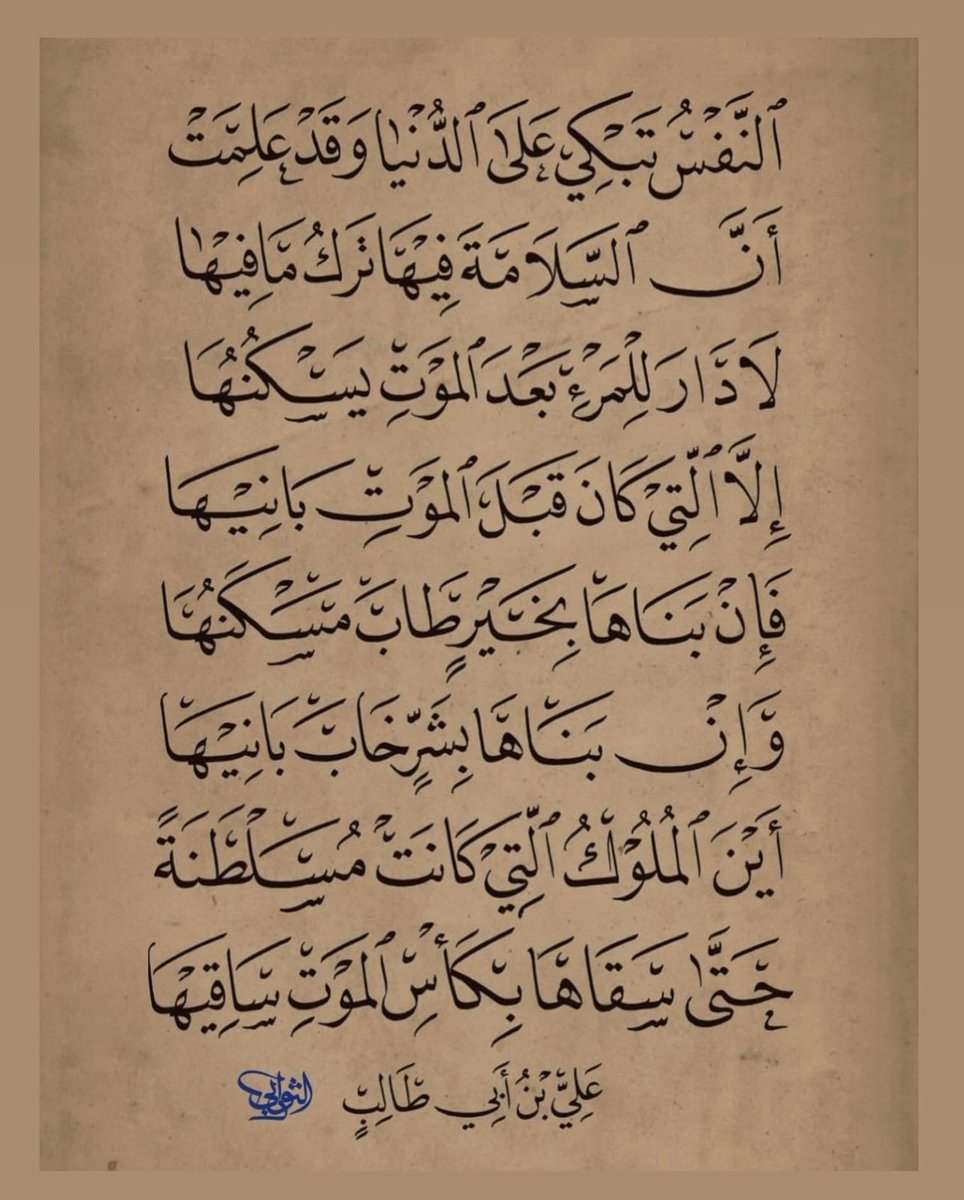 ٱلنَّفْسُ تَبْكِي عَلَىٰ ٱلدُّنْيَا وَقَدْ عَلِمَتْ
أَنَّ ٱلسَّلَامَةَ فِيهَا تَرْكُ مَا فِيهَا
لَا دَارَ لِلْمَرْءِ بَعْدَ ٱلْمَوْتِ يَسْكُنُهَا
إِلَّا ٱلَّتِي كَانَ قَبْلَ ٱلْمَوْتِ بَانِيْهَا
فَإِنْ بَنَاهَا بِخَيْرٍ طَابَ مَسْكَنُهَا
وَإِنْ بَنَاهَا بِشَرٍّ خَابَ بَانِيْهَا
أَيْنَ ٱلْمُلُوْكُ ٱلَّتِي كَانَتْ مُسَلْطَنَةً
حَتَّىٰ سَقَاهَا بِكَأْسِ ٱلْمَوْتِ سَاقِيْهَا
عَلِيُّ بْنُ أَبِي طَالِبٍ